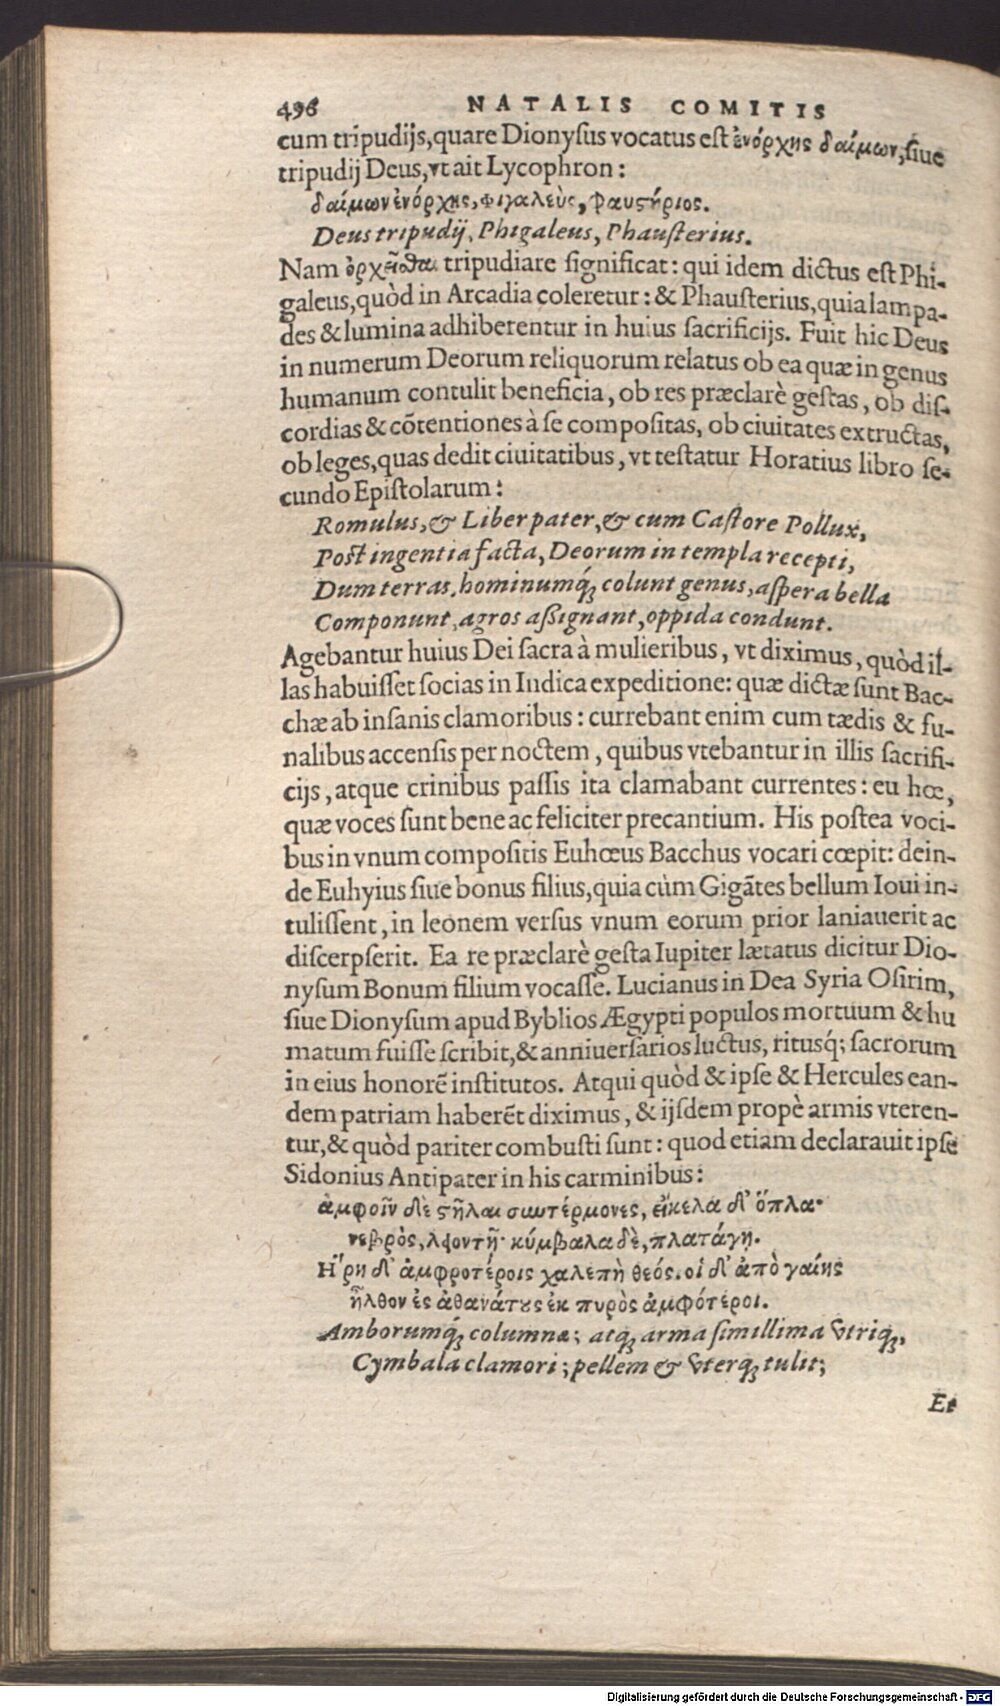 496 NATALIS COMITIS
cum tripudijs, quare Dionyſus vocatus eſt ἐνόρχης δαίμων, ſiue
tripudij Deus, vt ait Lycophron:
δαίμων ἐνόρχης, φιγαλεὺς, φαυϛήριος.
Deus tripudij, Phigaleus, Phauſterius.
Nam ὀρχεῖσθαι tripudiare ſignificat: qui idem dictus eſt Phi-
galeus, quòd in Arcadia coleretur: & Phauſterius, quia lampa-
des & lumina adhiberentur in huius ſacrificijs. Fuit hic Deus
in numerum Deorum reliquorum relatus ob ea quæ in genus
humanum contulit beneficia, ob res præclarè geſtas, ob diſ-
cordias & cõtentiones à ſe compoſitas, ob ciuitates extructas,
ob leges, quas dedit ciuitatibus, vt teſtatur Horatius libro ſe-
cundo Epiſtolarum:
Romulus, & Liber pater, & cum Caſtore Pollux,
Poſt ingentia facta, Deorum in templa recepti,
Dum terras, hominumq́; colunt genus, aſpera bella
Componunt, agros aſsignant, oppida condunt.
Agebantur huius Dei ſacra à mulieribus, vt diximus, quòd il-
las habuiſſet ſocias in Indica expeditione: quæ dictæ ſunt Bac-
chæ ab inſanis clamoribus: currebant enim cum tædis & fu-
nalibus accenſis per noctem, quibus vtebantur in illis ſacrifi-
cijs, atque crinibus paſſis ita clamabant currentes: eu hœ,
quæ voces ſunt bene ac feliciter precantium. His poſtea voci-
bus in vnum compoſitis Euhœus Bacchus vocari cœpit: dein-
de Euhyius ſiue bonus filius, quia cùm Gigãtes bellum Ioui in-
tuliſſent, in leonem verſus vnum eorum prior laniauerit ac
diſcerpſerit. Ea re præclarè geſta Iupiter lætatus dicitur Dio-
nyſum Bonum filium vocaſſe. Lucianus in Dea Syria Oſirim,
ſiue Dionyſum apud Byblios Ægypti populos mortuum & hu
matum fuiſſe ſcribit, & anniuerſarios luctus, ritusq́; ſacrorum
in eius honorẽ inſtitutos. Atqui quòd & ipſe & Hercules ean-
dem patriam haberẽt diximus, & ijſdem propè armis vteren-
tur, & quòd pariter combuſti ſunt: quod etiam declarauit ipſe
Sidonius Antipater in his carminibus:
ἀμφοῖν δὲ ϛῆλαι συντέρμονες, εἴκελα δ' ὅπλα·
νεβρὸς, λεοντῆ· κύμβαλα δὲ, πλατάγη.
Ἥρη δ' ἀμφροτέροις χαλεπὴ θεός. οἱ δ' ἀπὸ γαίης
ἦλθον ἐς ἀθανάτους ἐκ πυρὸς ἀμφότεροι.
Amborumq́; columnæ; atq; arma ſimillima vtriq;,
Cymbala clamori; pellem & vterq; tulit;
Et
Digitalisierung gefördert durch die Deutsche Forschungsgemeinschaft - DFG